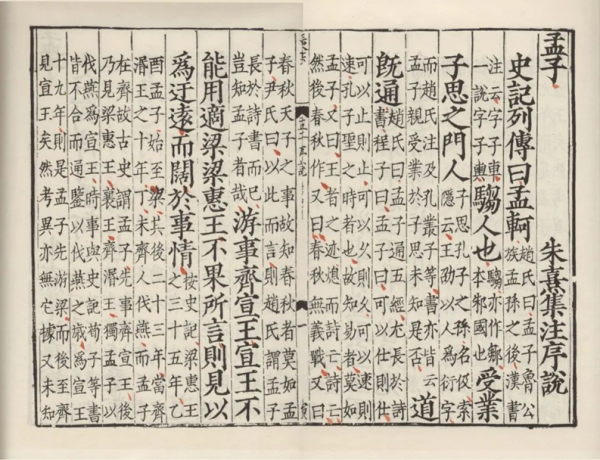 孟子 朱熹集注序說
史記列傳曰孟軻趙氏曰孟子魯公族孟孫之後漢書
注云字子車一說字子輿騶人也騶亦作鄒本邾國也受業
子思之門人子思孔子之孫名伋索隱云王劭以人爲衍字
而趙氏注及孔叢子等書亦皆云孟子親受業於子思未知是否道
旣通趙氏曰孟子通五經尤長於詩書程子曰孟子曰可以仕則仕
可以止則止可以久則久可以速則速孔子聖之時者也故知易者莫如
孟子又曰王者之迹熄而詩亡詩亡然後春秋作又曰春秋無義戰又曰
春秋天子之事故知春秋者莫如孟子尹氏曰以此而言則趙氏謂孟子
長於詩書而已豈知孟子者哉游事齊宣王宣王不
能用適梁梁惠王不果所言則見以
爲迂遠而闊於事情按史記梁惠王之三十五年乙
酉孟子始至梁其後二十三年當齊湣王之十年丁未齊人伐燕而孟子
在齊故古史謂孟子先事齊宣王後乃見梁惠王襄王齊湣王獨孟子以
伐燕爲宣王時事與史記荀子等書皆不合而通鑑以伐燕之歲爲宣王
十九年則是孟子先游梁而後至齊見宣王矣然考異亦無它據又未知